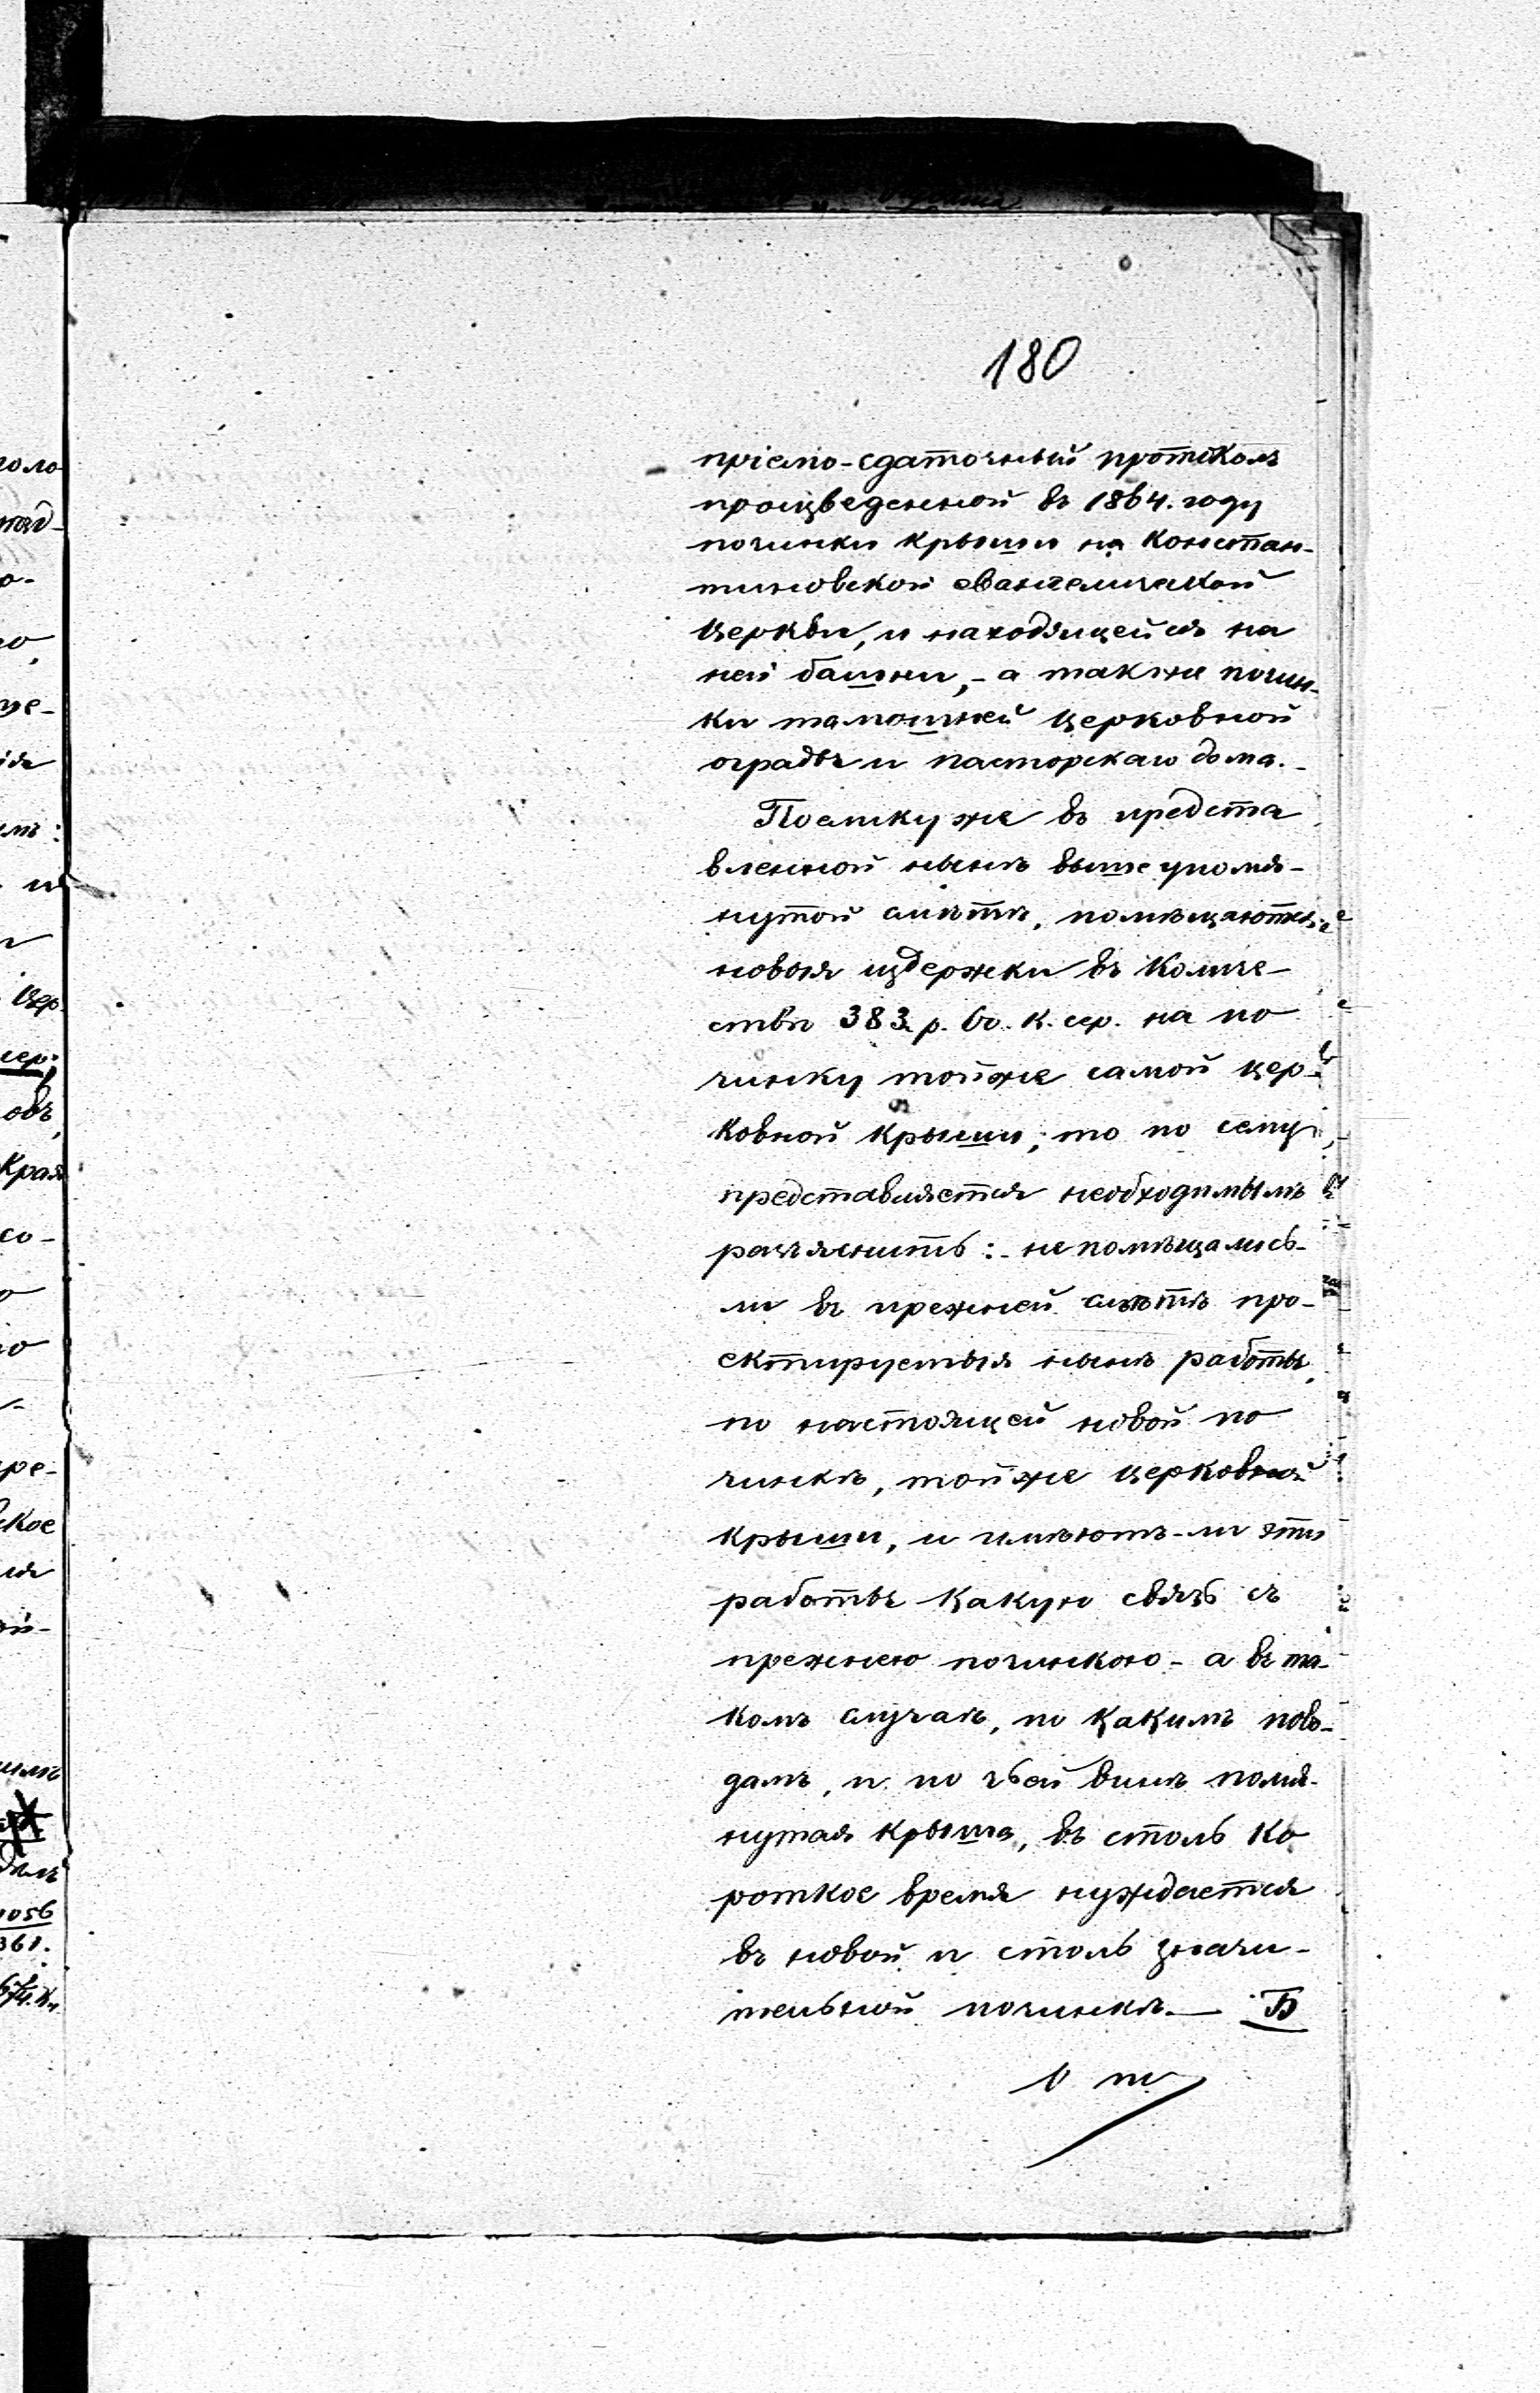 180
пріемо-сдаточный протоколъ
произведенной въ 1864. году
починки крыши на Констан-
тиновской евангелической
церкви, и находящейся на
ней башни, - а также почин-
ки тамошней церковной
ограды и пасторскаго дома. -
Поелику же въ предста
вленной нынѣ выше упомя-
нутой смѣтѣ, помѣщаются
новыя издержки въ количе-
ствѣ 383 р. 60. к. сер. на по
чинку тойже самой цер-
ковной крыши; то по сему
представляется необходимымъ
разъяснить: - не помѣщались-
ли въ прежней смѣтѣ про-
ектируемыя нынѣ работы,
по настоящей новой по
чинкѣ, тойже церковной
крыши, и имѣютъ-ли эти
работы какую связь съ
прежнею починкою - а въ та-
комъ случаѣ, по какимъ пово-
дамъ, и по чьей винѣ помя-
нутая крыша, въ столь ко
роткое время нуждается
въ новой и столь значи-
тельной починкѣ. — Б
поло
о-
іе
и
Цер.
сер;
овъ,
Края
со-
ре-
ское
361.